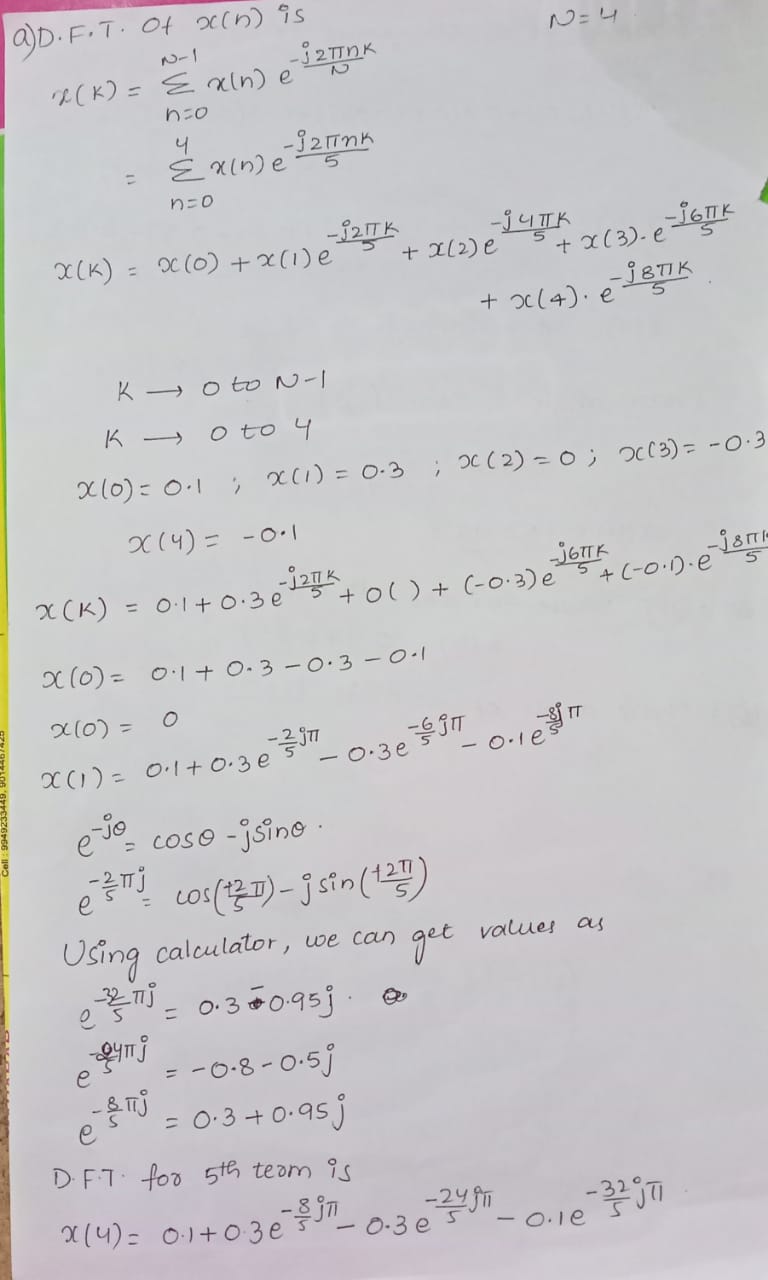 a) D.F.T. Of x(n) is
N=4
x(K) = Σ_{n=0}^{N-1} x(n) e^{-j2πnk/N}
= Σ_{n=0}^{4} x(n) e^{-j2πnk/5}
x(K) = x(0) + x(1) e^{-j2πK/5} + x(2) e^{-j4πK/5} + x(3). e^{-j6πK/5}
+ x(4). e^{-j8πK/5}
K → 0 to N-1
K → 0 to 4
x(0) = 0.1 ; x(1) = 0.3 ; x(2) = 0 ; x(3) = -0.3
x(4) = -0.1
x(K) = 0.1 + 0.3 e^{-j2πK/5} + 0( ) + (-0.3) e^{-j6πK/5} + (-0.1). e^{-j8πK/5}
x(0) = 0.1 + 0.3 - 0.3 - 0.1
x(0) = 0
x(1) = 0.1 + 0.3 e^{-2/5 jπ} - 0.3 e^{-6/5 jπ} - 0.1 e^{-8/5 jπ}
e^{-jθ} = cosθ - jsinθ.
e^{-2/5 πj} = cos(+2/5 π) - j sin(+2π/5)
Using calculator, we can get values as
e^{-32/5 πj} = 0.3 - 0.95j.
e^{-24πj/5} = -0.8 - 0.5j
e^{-8/5 πj} = 0.3 + 0.95j
D.F.T. for 5th term is
x(4) = 0.1 + 0.3 e^{-8/5 jπ} - 0.3 e^{-24/5 jπ} - 0.1 e^{-32/5 jπ}
Cell : 9949233449, 9014467428